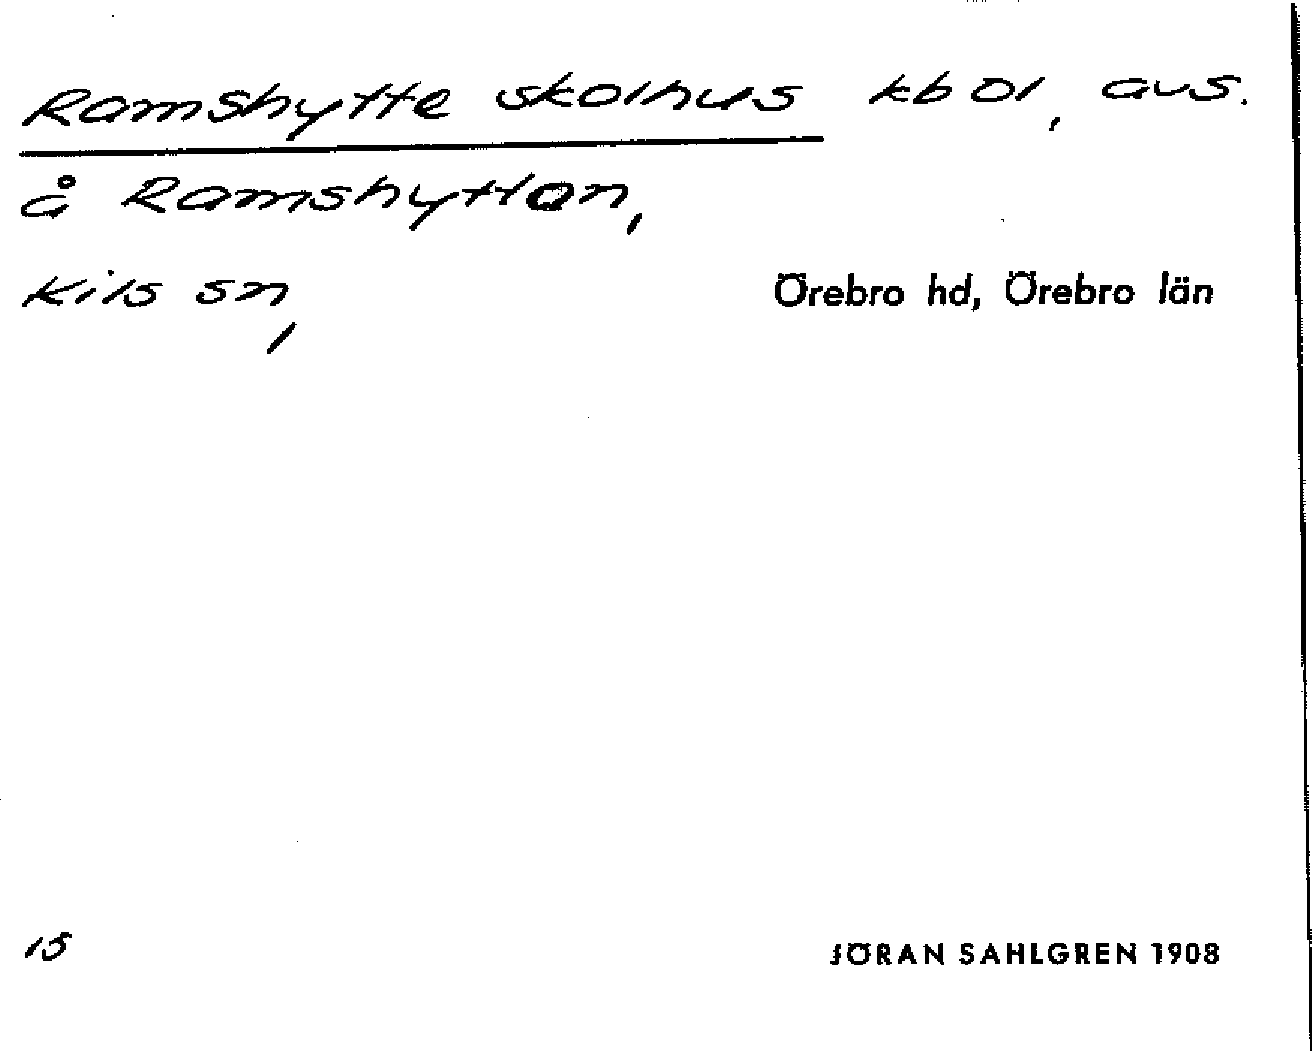 Ramshytte skolhus kbol, avs.
å Ramshyttan,
Kils sn,
Örebro hd, Örebro län
15
JÖRAN SAHLGREN 1908